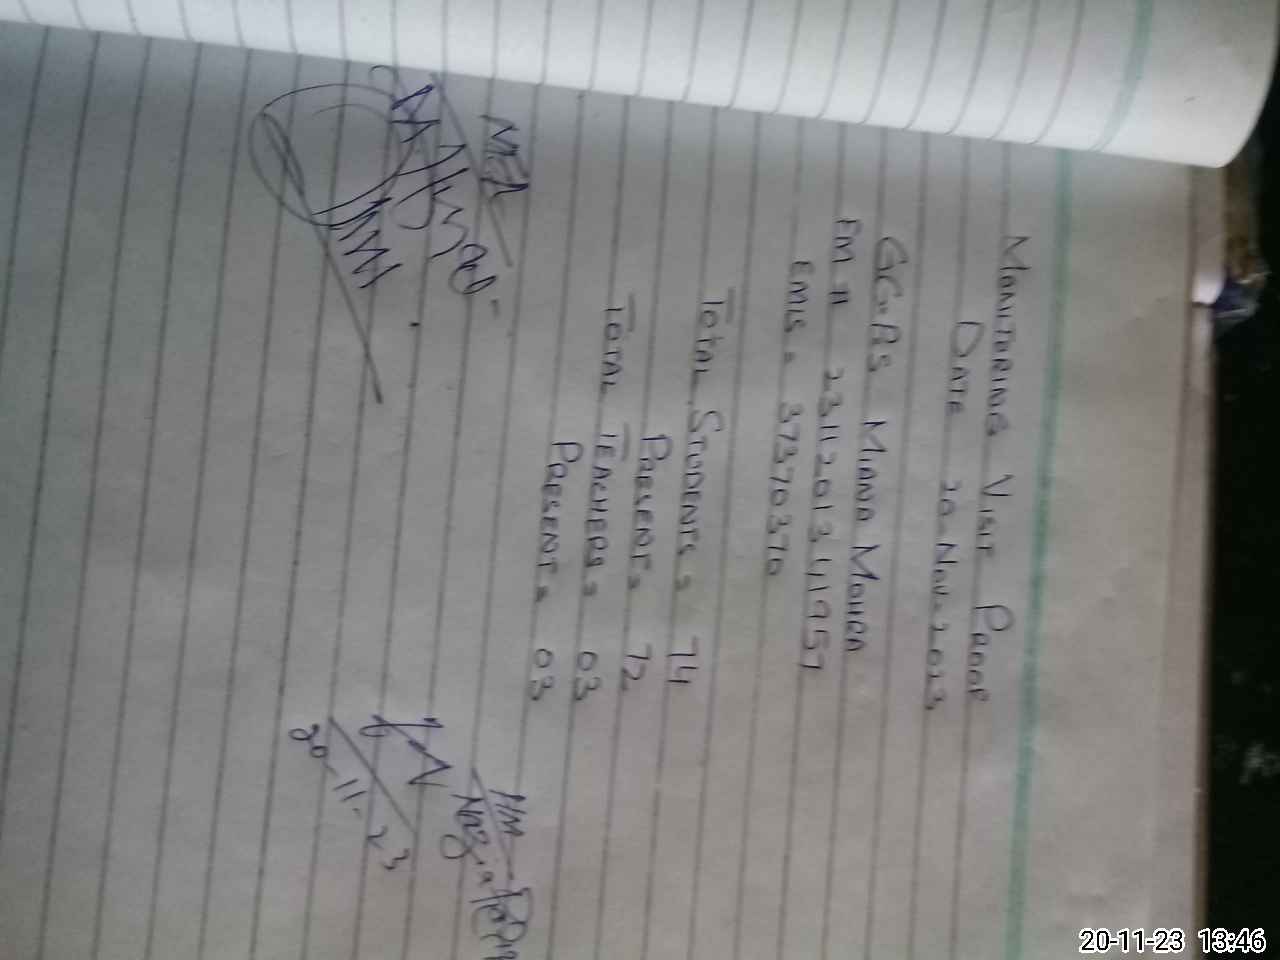 MONITORING VISIT PROOF
DATE 20-NOV-2023
GGPS MIANA MOHRA
FM #
EMIS = 37370370
TOTAL STUDENTS = 74
PRESENT = 72
TOTAL TEACHERS = 03
PRESENT = 03
MEA
HM
Nazia
20-11-23
20-11-23 13:46